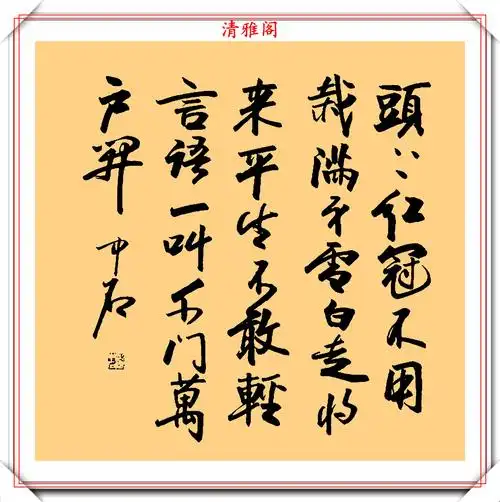 清雅阁
頭上红冠不用
裁滿身雪白走将
来平生不敢輕
言語一叫千门萬
户開 中石